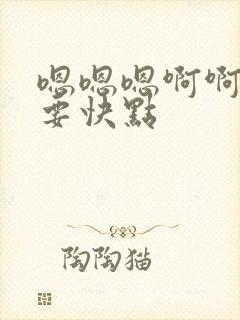 嗯嗯嗯啊啊
要快點
陶陶猫